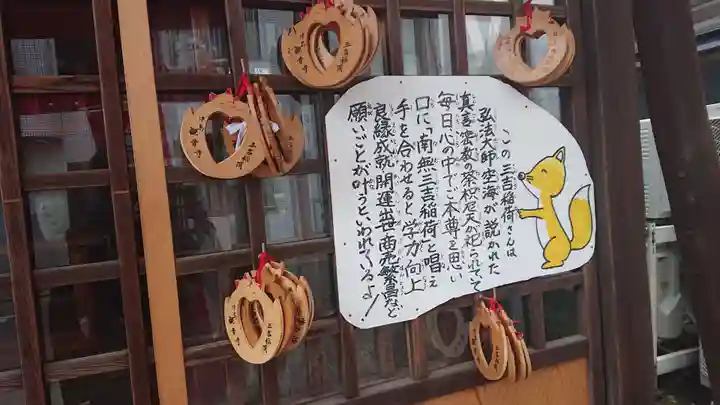 この三吉稲荷さんは
弘法大師空海が説かれた
真言密教の荼枳尼天が祀られていて
毎日心の中でご本尊を思い
口に「南無三吉稲荷」と唱え
手を合わせると学力向上
良縁成就開運出世商売繁昌など
願いごとが叶うといわれているよ!
三吉稲荷
観音寺
三吉稲荷
観音寺
三吉稲荷
観音寺